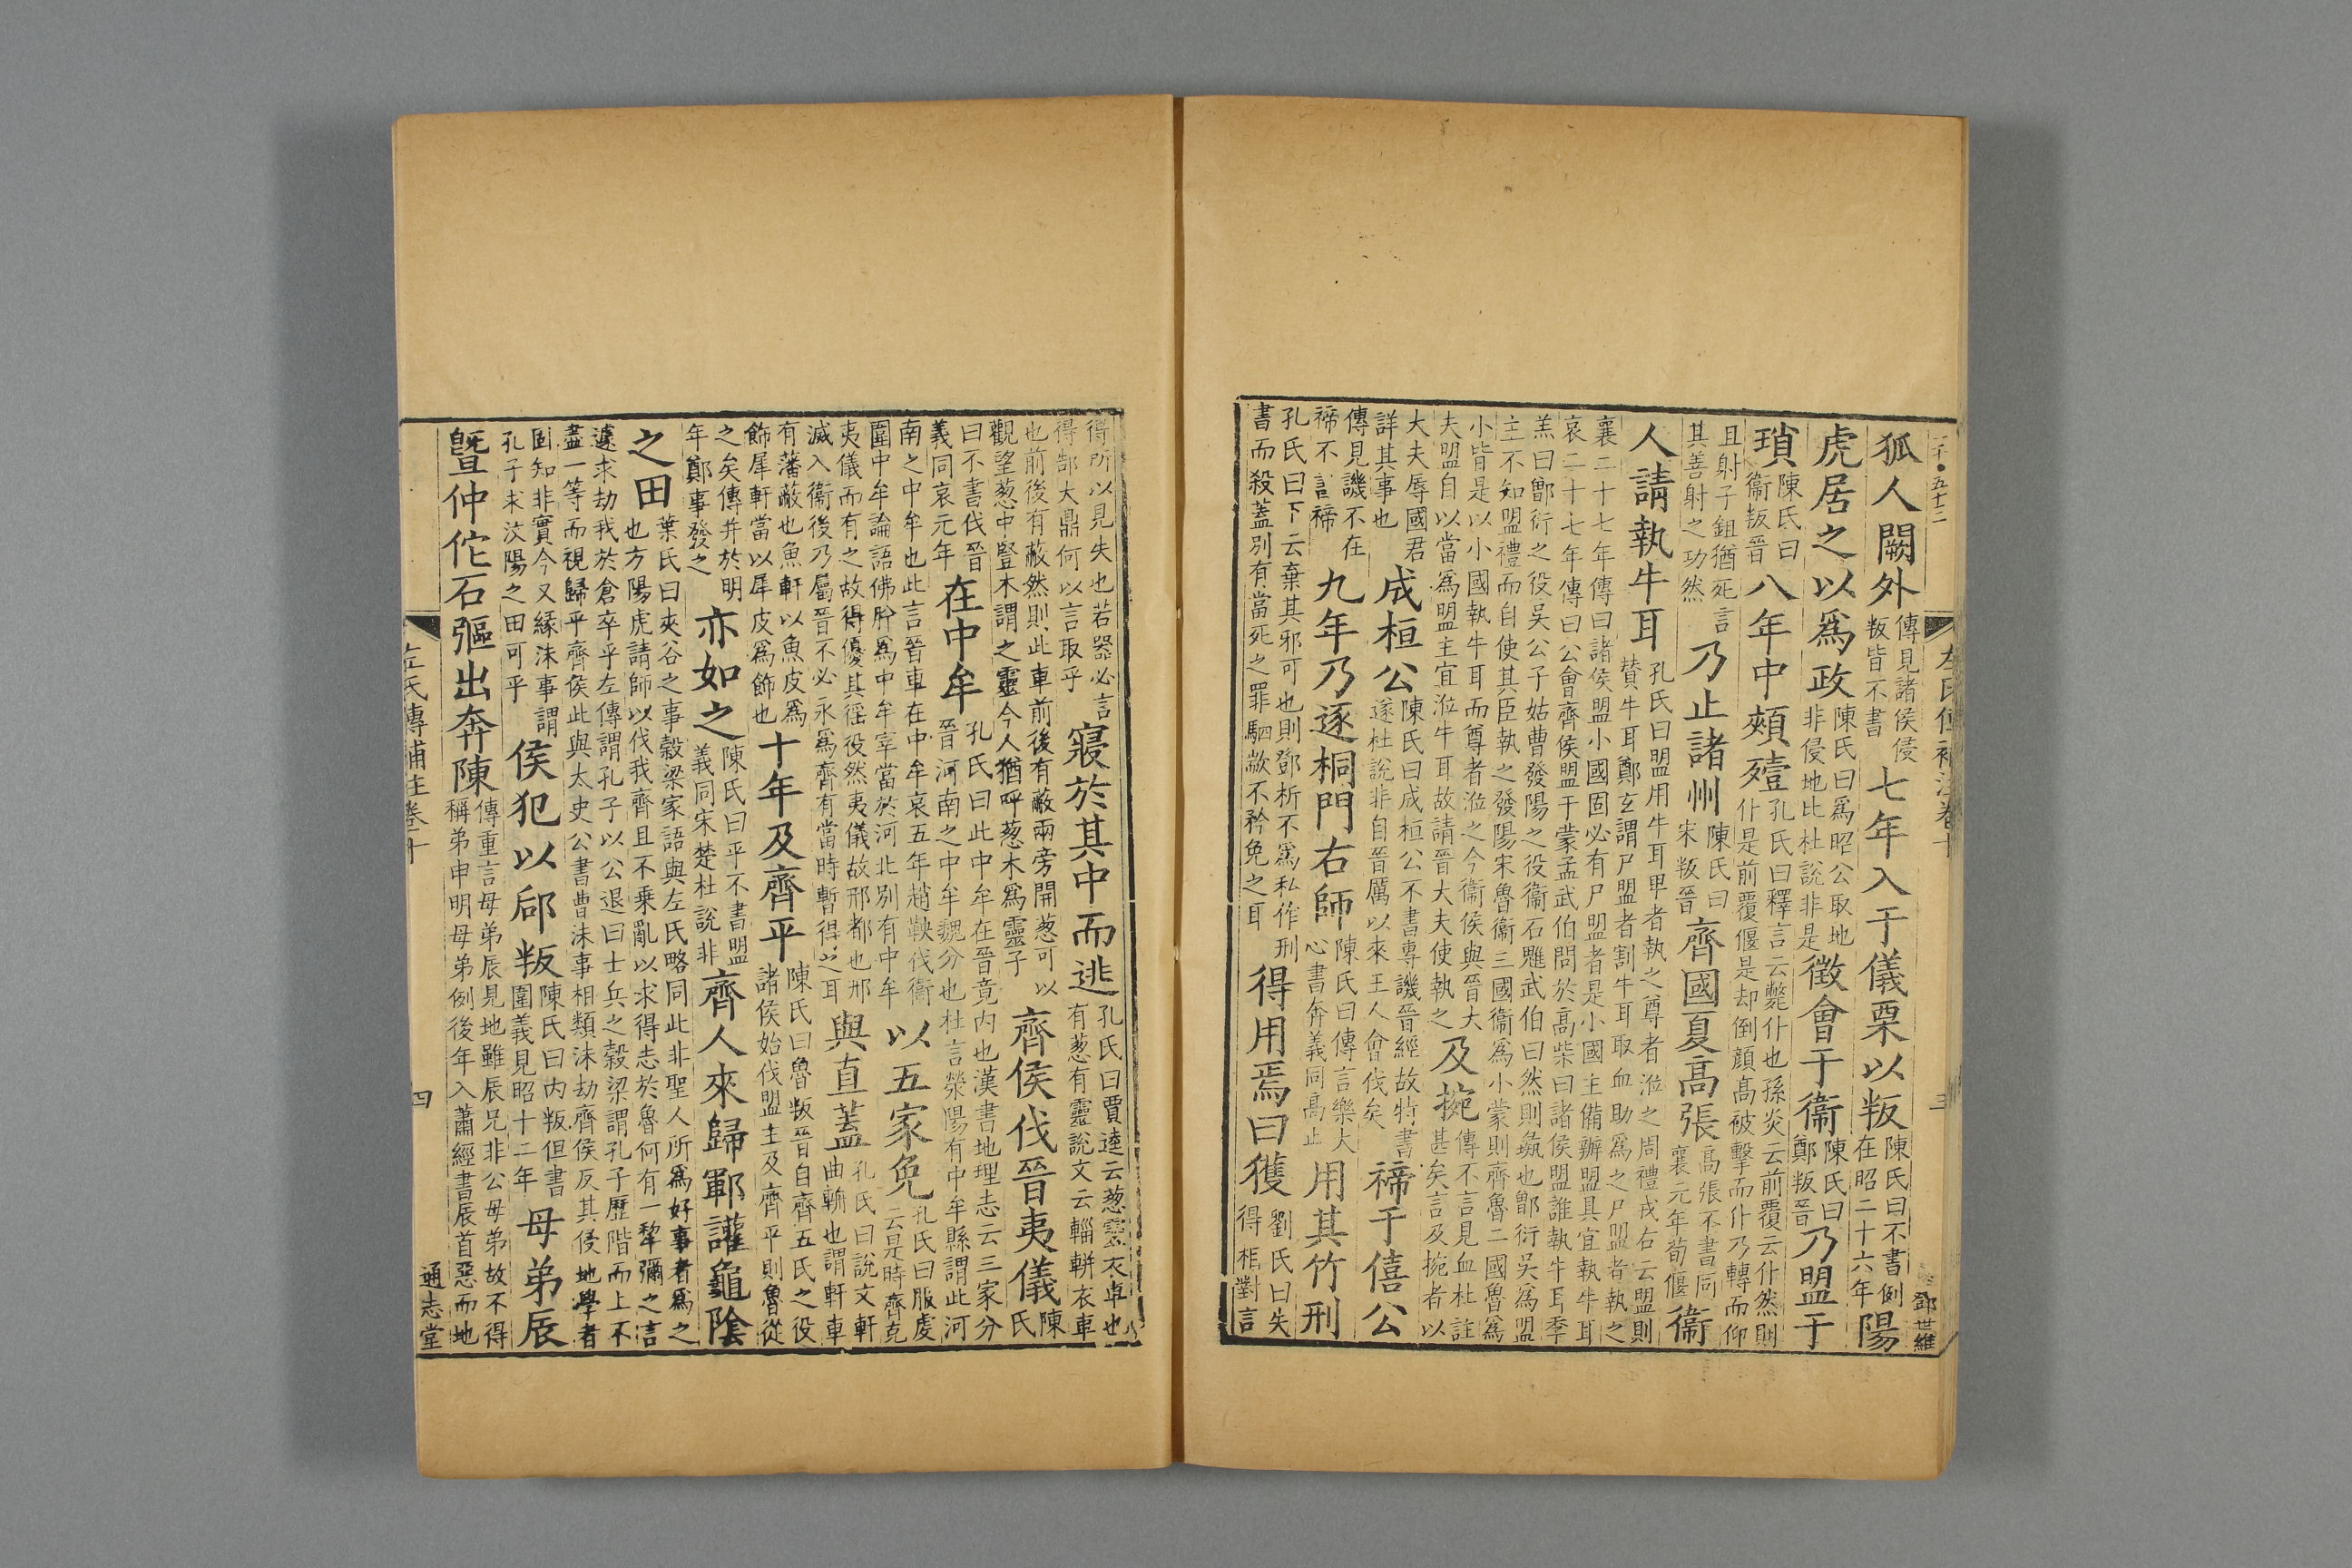 五十二
左氏傳補注卷十 三 鄧世維
狐人闕外傳見諸侯侵叛皆不書七年入于儀栗以叛陳氏曰不書例在昭二十六年陽
虎居之以爲政陳氏曰爲昭公取地非侵地比杜說非是徵會于衞陳氏曰鄭叛晉乃盟于
瑣陳氏曰衞叛晉八年中頰殪孔氏曰釋言云斃仆也孫炎云前覆云仆然則仆是前覆偃是却倒顏高被擊而仆乃轉而仰
且射子鉏猶死言其善射之功然乃止諸州陳氏曰宋叛晉齊國夏高張高張不書同襄元年荀偃衞
人請執牛耳孔氏曰盟用牛耳卑者執之尊者涖之周禮戎右云盟則贊牛耳鄭玄謂尸盟者割牛耳取血助爲之尸盟者執之
襄二十七年傳曰諸侯盟小國固必有尸盟者是小國主備辦盟具宜執牛耳哀二十七年傳曰公會齊侯盟于蒙孟武伯問於高柴曰諸侯盟誰執牛耳季
羔曰鄫衍之役吳公子姑曹發陽之役衞石魋武伯曰然則彘也鄫衍吳爲盟主不知盟禮而自使其臣執之發陽宋魯衞三國衞爲小蒙則齊魯二國魯爲
小皆是以小國執牛耳而尊者涖之今衞侯與晉大夫盟自以當爲盟主宜涖牛耳故請晉大夫使執之及捥傳不言見血杜註甚矣言及捥者以
大夫辱國君詳其事也成桓公陳氏曰成桓公不書專譏晉經故特書遂杜說非自晉厲以來王人會伐矣禘于僖公
傳見譏不在禘不言禘九年乃逐桐門右師陳氏曰傳言樂大心書奔義同高止用其竹刑
孔氏曰下云棄其邪可也則鄧析不爲私作刑書而殺蓋別有當死之罪駟歂不矜免之耳得用焉曰獲劉氏曰失得相對言
得所以見失也若器必言得郜大鼎何以言取乎寢於其中而逃孔氏曰賈逵云葱靈衣車也有葱有靈說文云輜軿衣車
也前後有蔽然則此車前後有蔽兩旁開葱可以觀望葱中豎木謂之靈今人猶呼葱木爲靈子齊侯伐晉夷儀陳氏
曰不書伐晉義同哀元年在中牟孔氏曰此中牟在晉竟內也漢書地理志云三家分晉河南之中牟魏分也杜言滎陽有中牟縣謂此河
南之中牟也此言晉車在中牟哀五年趙鞅伐衞圍中牟論語佛肸爲中牟宰當於河北別有中牟以五家免孔氏曰服虔云是時齊克
夷儀而有之故得優其徭役然夷儀故邢都也邢滅入衞後乃屬晉不必永爲齊有當時暫得之耳與直蓋孔氏曰說文軒曲輈也謂軒車
有藩蔽也魚軒以魚皮爲飾犀軒當以犀皮爲飾也十年及齊平陳氏曰魯叛晉自齊五氏之役諸侯始伐盟主及齊平則魯從
之矣傳并於明年鄭事發之亦如之陳氏曰平不書盟義同宋楚杜說非齊人來歸鄆讙龜陰
之田葉氏曰夾谷之事穀梁家語與左氏略同此非聖人所爲好事者爲之也方陽虎請師以伐我齊且不乗亂以求得志於魯何有一犂彌之言
遽求劫我於倉卒乎左傳謂孔子以公退曰士兵之穀梁謂孔子歷階而上不盡一等而視歸乎齊侯此與太史公書曹沬事相類沬劫齊侯反其侵地學者
固知非實今又緣沬事謂孔子求汶陽之田可乎侯犯以郈叛陳氏曰內叛但書圍義見昭十二年母弟辰
暨仲佗石彄出奔陳傳重言母弟辰見地雖辰兄非公母弟故不得稱弟申明母弟例後年入蕭經書辰首惡而地
左氏傳補注卷十 四 通志堂